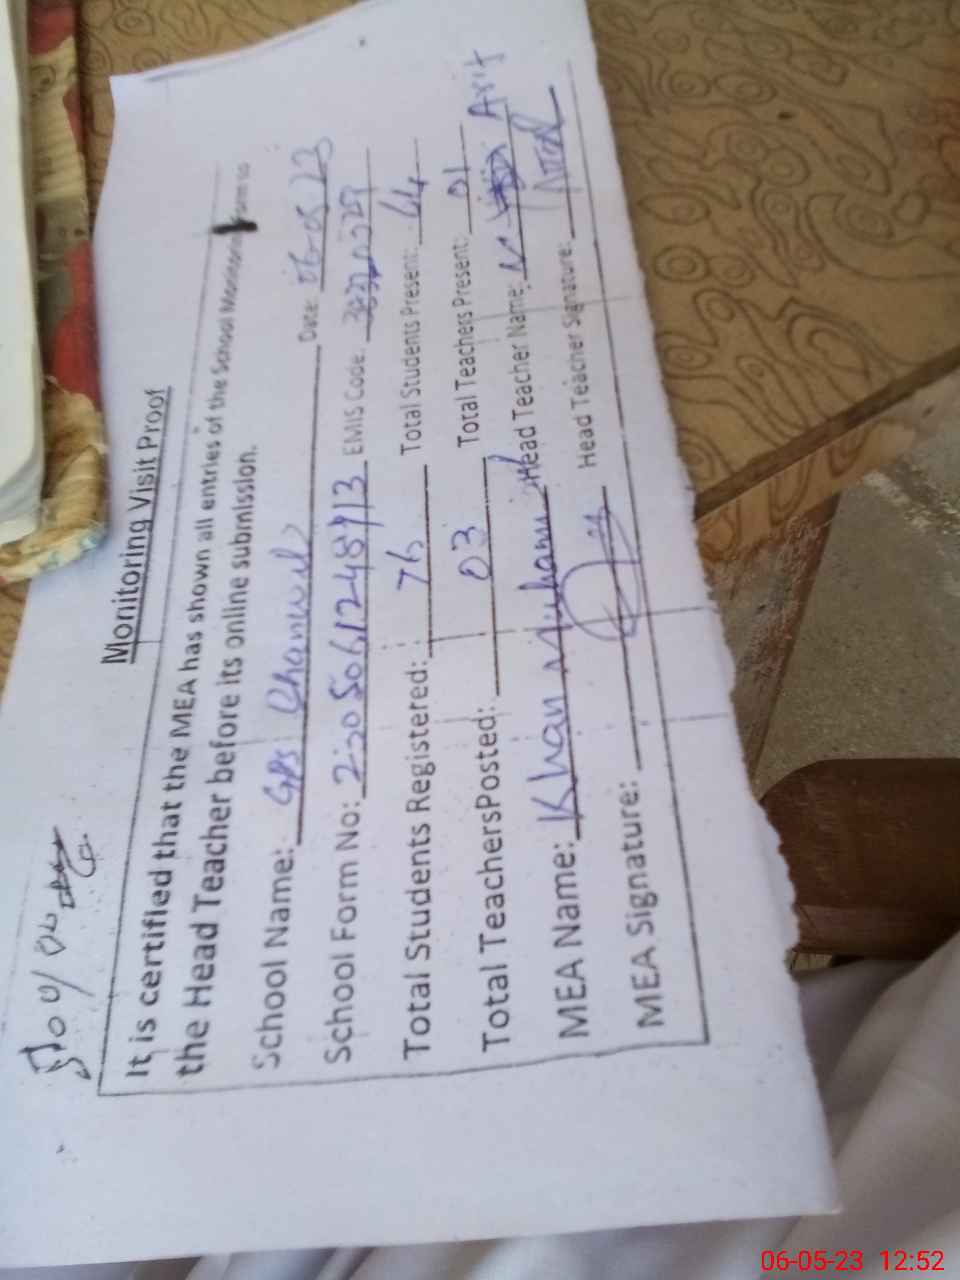 Monitoring Visit Proof
It is certified that the MEA has shown all entries of the School Monitoring Form to
the Head Teacher before its online submission.
School Name: GPS Chanwal Date: 06-05-23
School Form No: 2305061248913 EMIS Code:
Total Students Registered: 76 Total Students Present: 64
Total TeachersPosted: 03 Total Teachers Present: 01
MEA Name: Khan Muhammad Head Teacher Name: M Arif
MEA Signature: Head Teacher Signature:
06-05-23 12:52